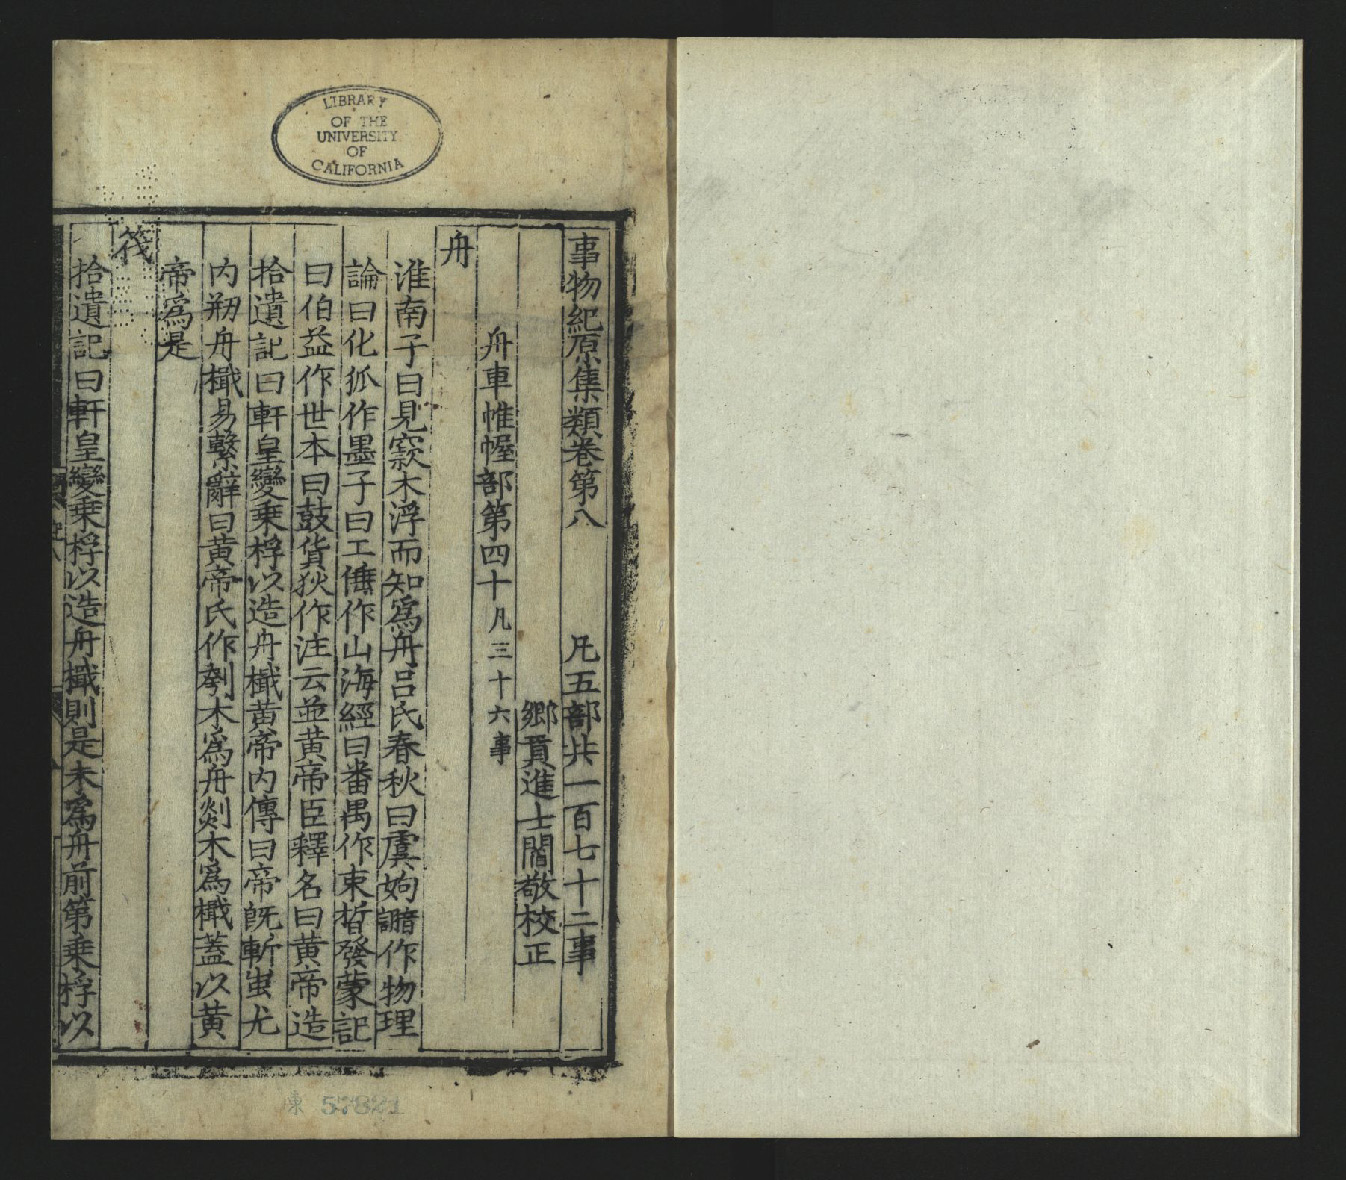 事物紀原集類卷第八　凡五部共一百七十二事
鄉貢進士閻敬校正
舟車帷幄部第四十凡三十六事
舟
淮南子曰見窾木浮而知為舟呂氏春秋曰虞姁作物理
論曰化狐作墨子曰工倕作山海經曰番禺作束晳發蒙記
曰伯益作世本曰鼓貨狄作注云並黃帝臣釋名曰黃帝造
拾遺記曰軒皇變乗桴以造舟檝黃帝內傳曰帝旣斬蚩尤
內刱舟檝易繫辭曰黃帝氏作刳木為舟剡木為檝蓋以黃
帝為是
筏
拾遺記曰軒皇變乗桴以造舟檝則是未為舟前第乗桴以
LIBRARY
OF THE
UNIVERSITY
OF
CALIFORNIA
東 57821